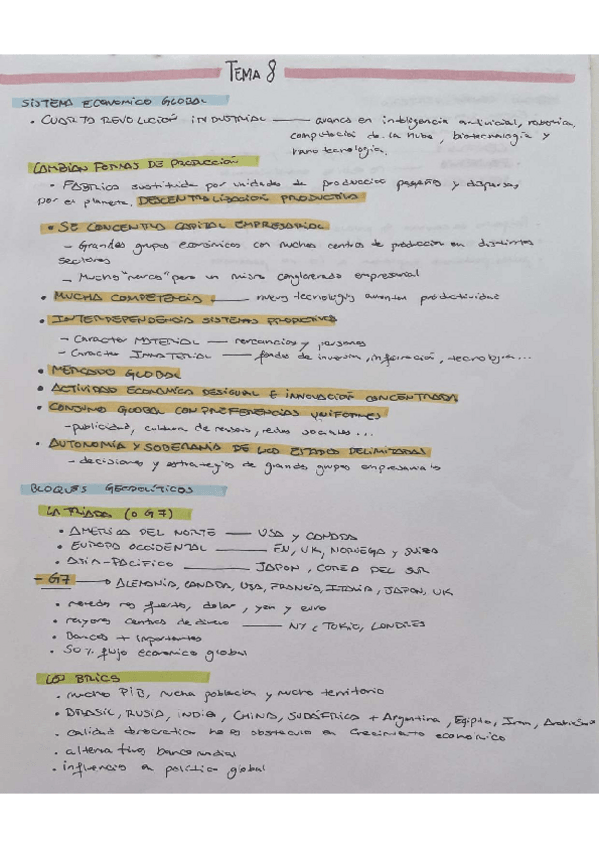 TEMA 8
SISTEMA ECONOMICO GLOBAL
• CUARTO REVOLUCIÓN INDUSTRIAL —— avances en inteligencia artificial, robotica,
computación de la nube, biotecnologia y
nanotecnologia.
CAMBIAN FORMAS DE PRODUCCIÓN
• FABRICA sustituida por unidades de produccion pequeñas y dispersas
por el planeta. DESCENTRALIZACION PRODUCTIVA
• SE CONCENTRA CAPITAL EMPRESARIAL
– Grandes grupos económicos con muchos centros de produccion en distintos
sectores
– Mucha "marca" pero un mismo conglomerado empresarial
• MUCHA COMPETENCIA —— nuevas tecnologias aumentan productividad
• INTERDEPENDENCIA SISTEMAS PRODUCTIVOS
– Caracter MATERIAL —— mercancias y personas
– Caracter INMATERIAL —— fondos de inversion, información, tecnologia...
• MERCADO GLOBAL
• ACTIVIDAD ECONOMICA DESIGUAL E INNOVACION CONCENTRADA
• CONSUMO GLOBAL CON PREFERENCIAS UNIFORMES
– publicidad, cultura de masas, redes sociales...
• AUTONOMÍA Y SOBERANÍA DE LOS ESTADOS DELIMITADAS
– decisiones y estrategias de grandes grupos empresariales
BLOQUES GEOPOLÍTICOS
LA TRIADA (o G7)
• AMERICA DEL NORTE —— USA y CANADA
• EUROPA OCCIDENTAL —— UK, NORUEGA y SUIZA
• ASIA-PACIFICO —— JAPON, COREA DEL SUR
– G7 —— ALEMANIA, CANADA, USA, FRANCIA, ITALIA, JAPON, UK
• moneda mas fuerte, dolar, yen y euro
• mayores centros de dinero —— NY, TOKIO, LONDRES
• Bancos + importantes
• 50% flujo economico global
LOS BRICS
• mucho PIB, mucha poblacion y mucho territorio
• BRASIL, RUSIA, INDIA, CHINA, SUDÁFRICA + Argentina, Egipto, Iran,
• calidad democratica no es obstaculo en crecimiento económico
• alternativas banco mundial
• influencia en politica global